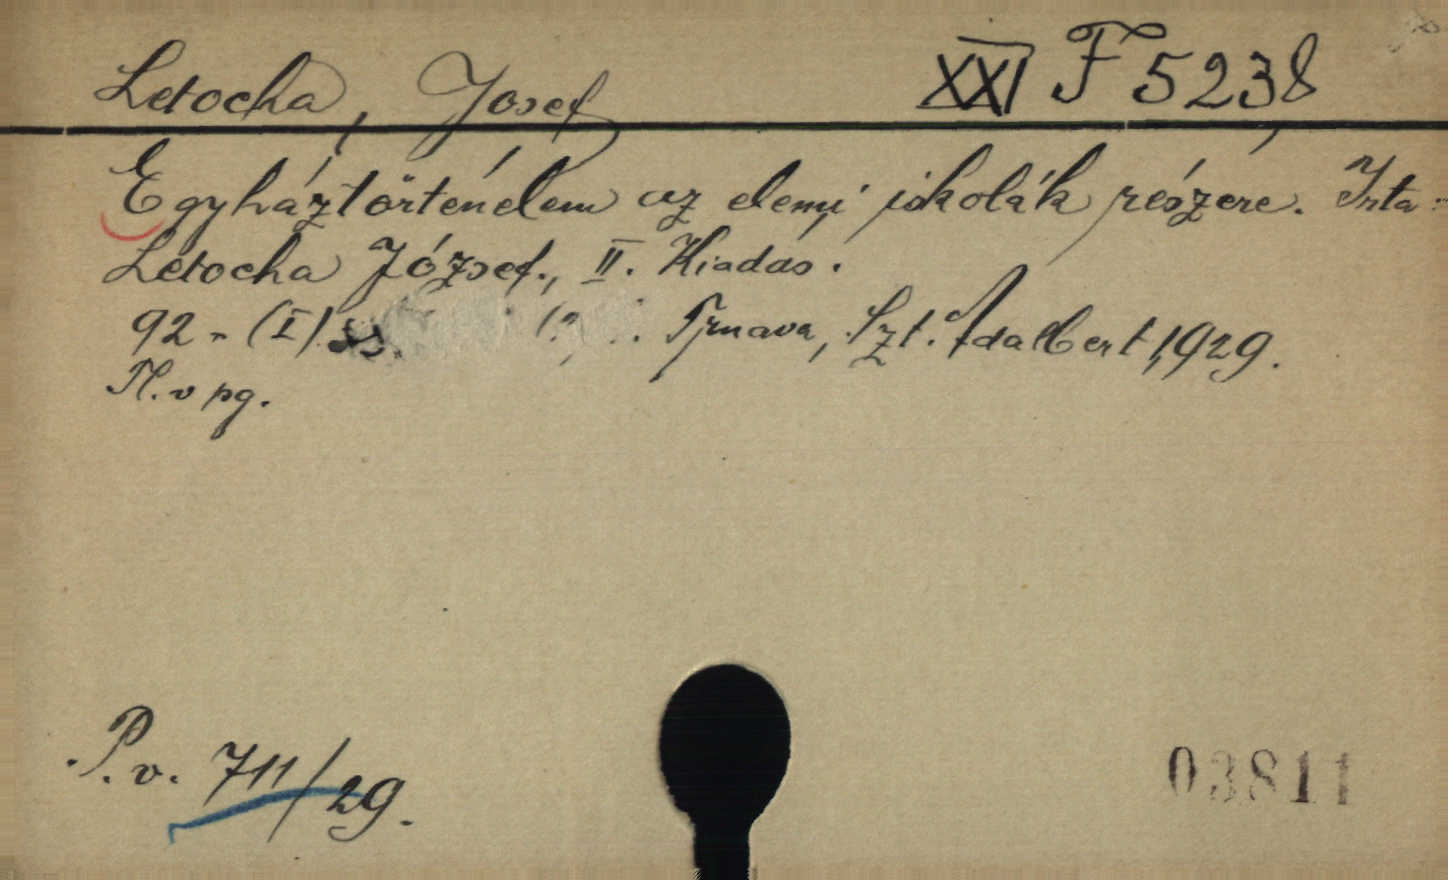 Letocha, Josef XXI F 5238
Egyháztörténelem az elemi iskolák részére. Irta:
Letocha József., II. Kiadás.
92 - (I) Trnava, Szt. Adalbert, 1929.
Pl. v pg.
P.v. 711/29.
03811